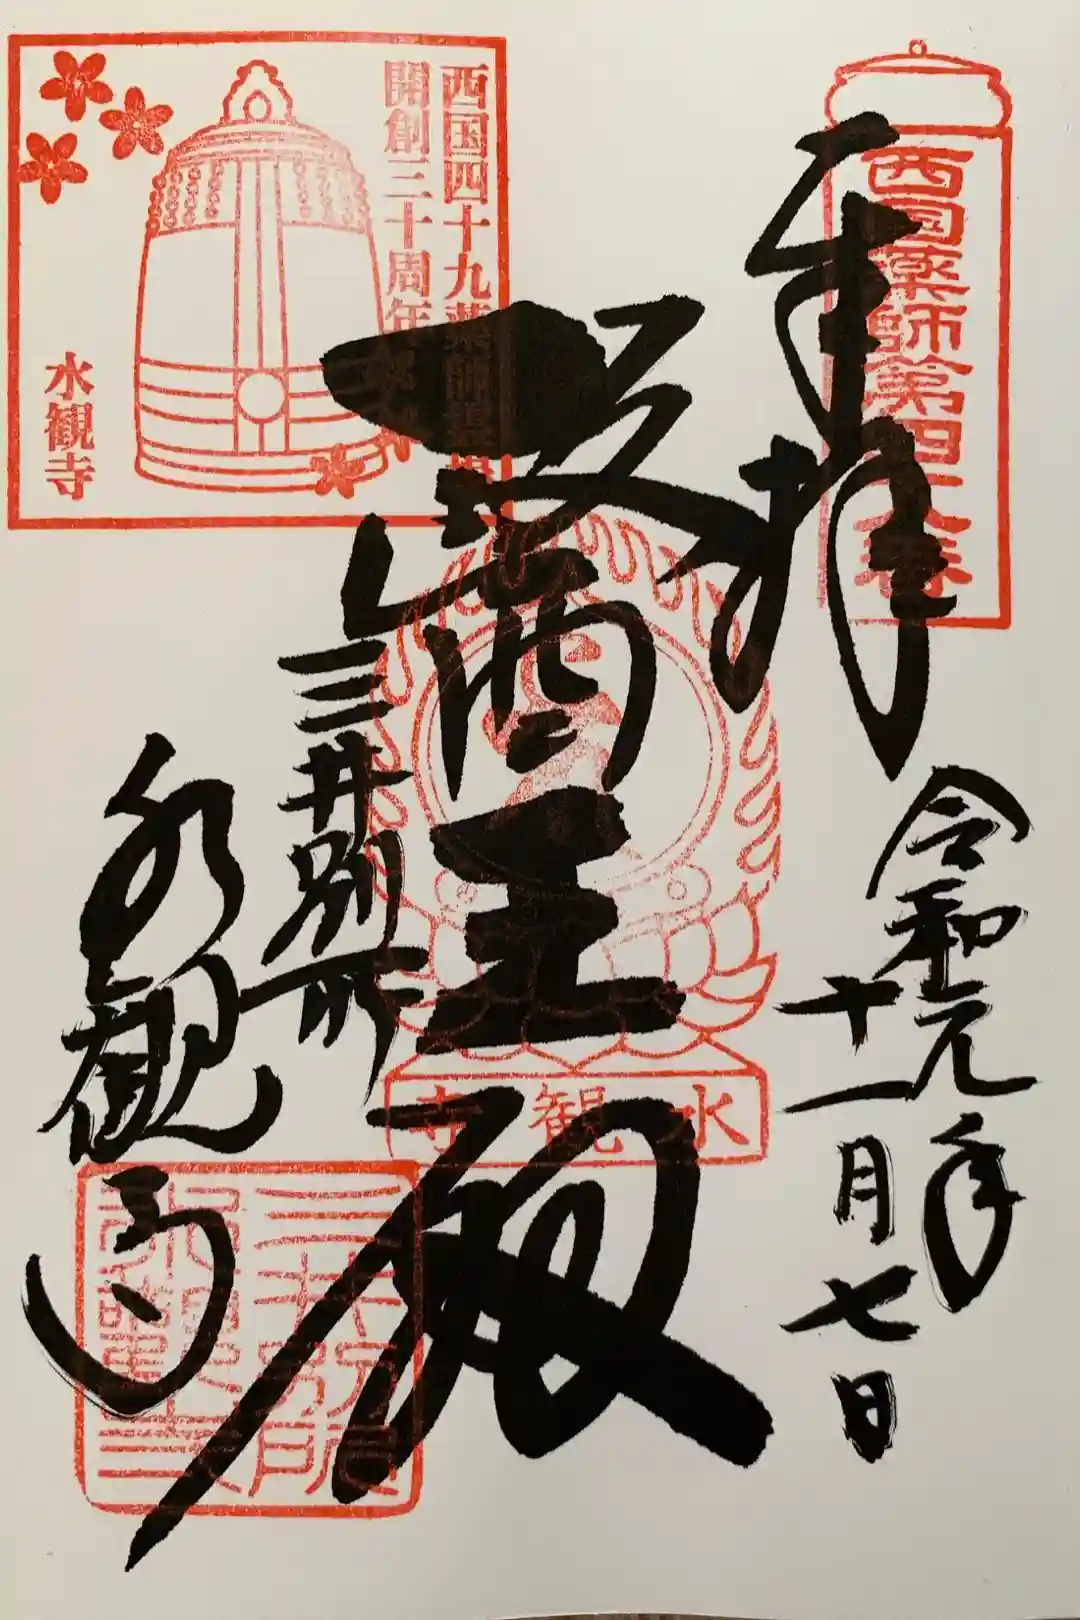 奉拝
西国薬師第四十八番
令和元年
十一月七日
医王殿
三井別所
水観寺
西国四十九薬師霊場
開創三十周年
水観寺
水観寺